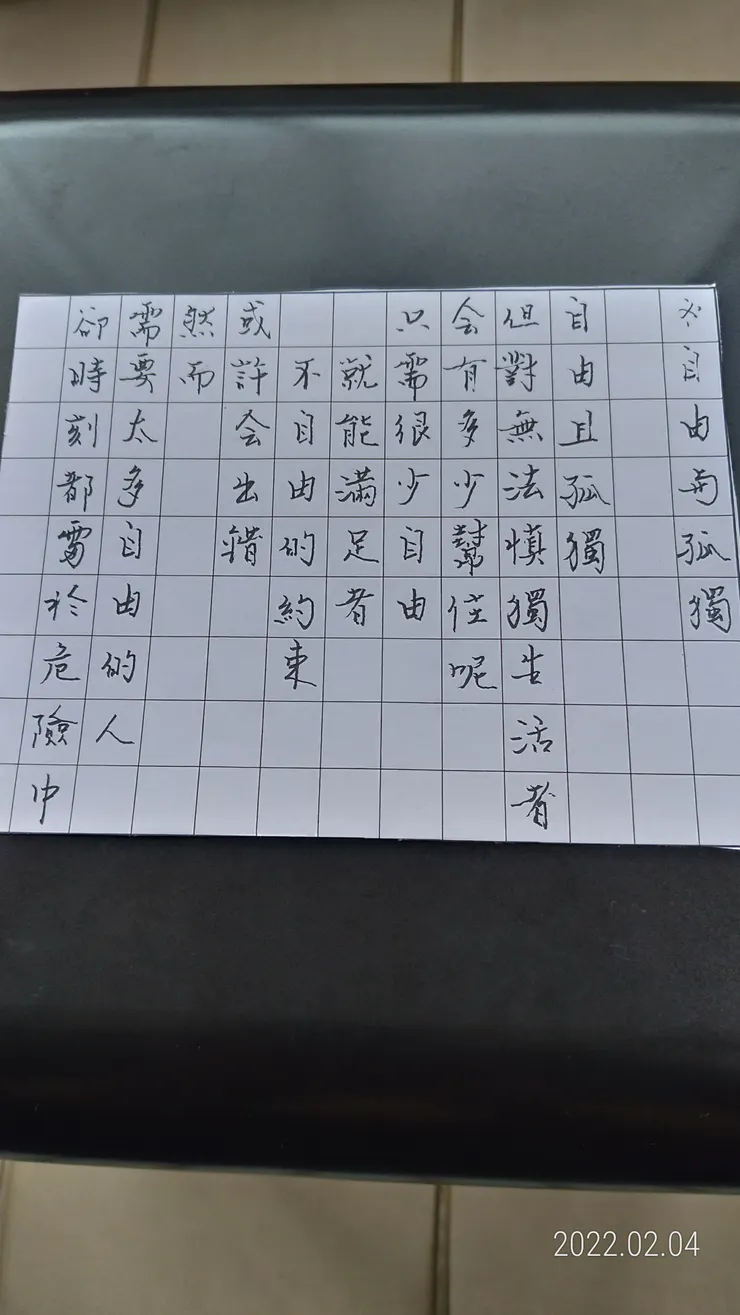 自由与孤獨
自由且孤獨
但對無法慎獨生活者
会有多少幫住呢
只需很少自由
就能滿足者
不自由的約束
或許会出錯
然而
需要太多自由的人
卻時刻都於危險中
2022.02.04